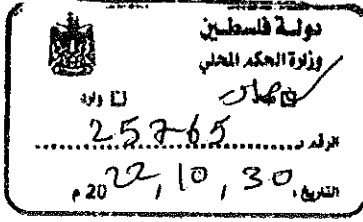 دولة فلسطين
وزارة الحكم المحلي
صادر وارد
الرقم 25765
التاريخ 2022, 10, 30 م